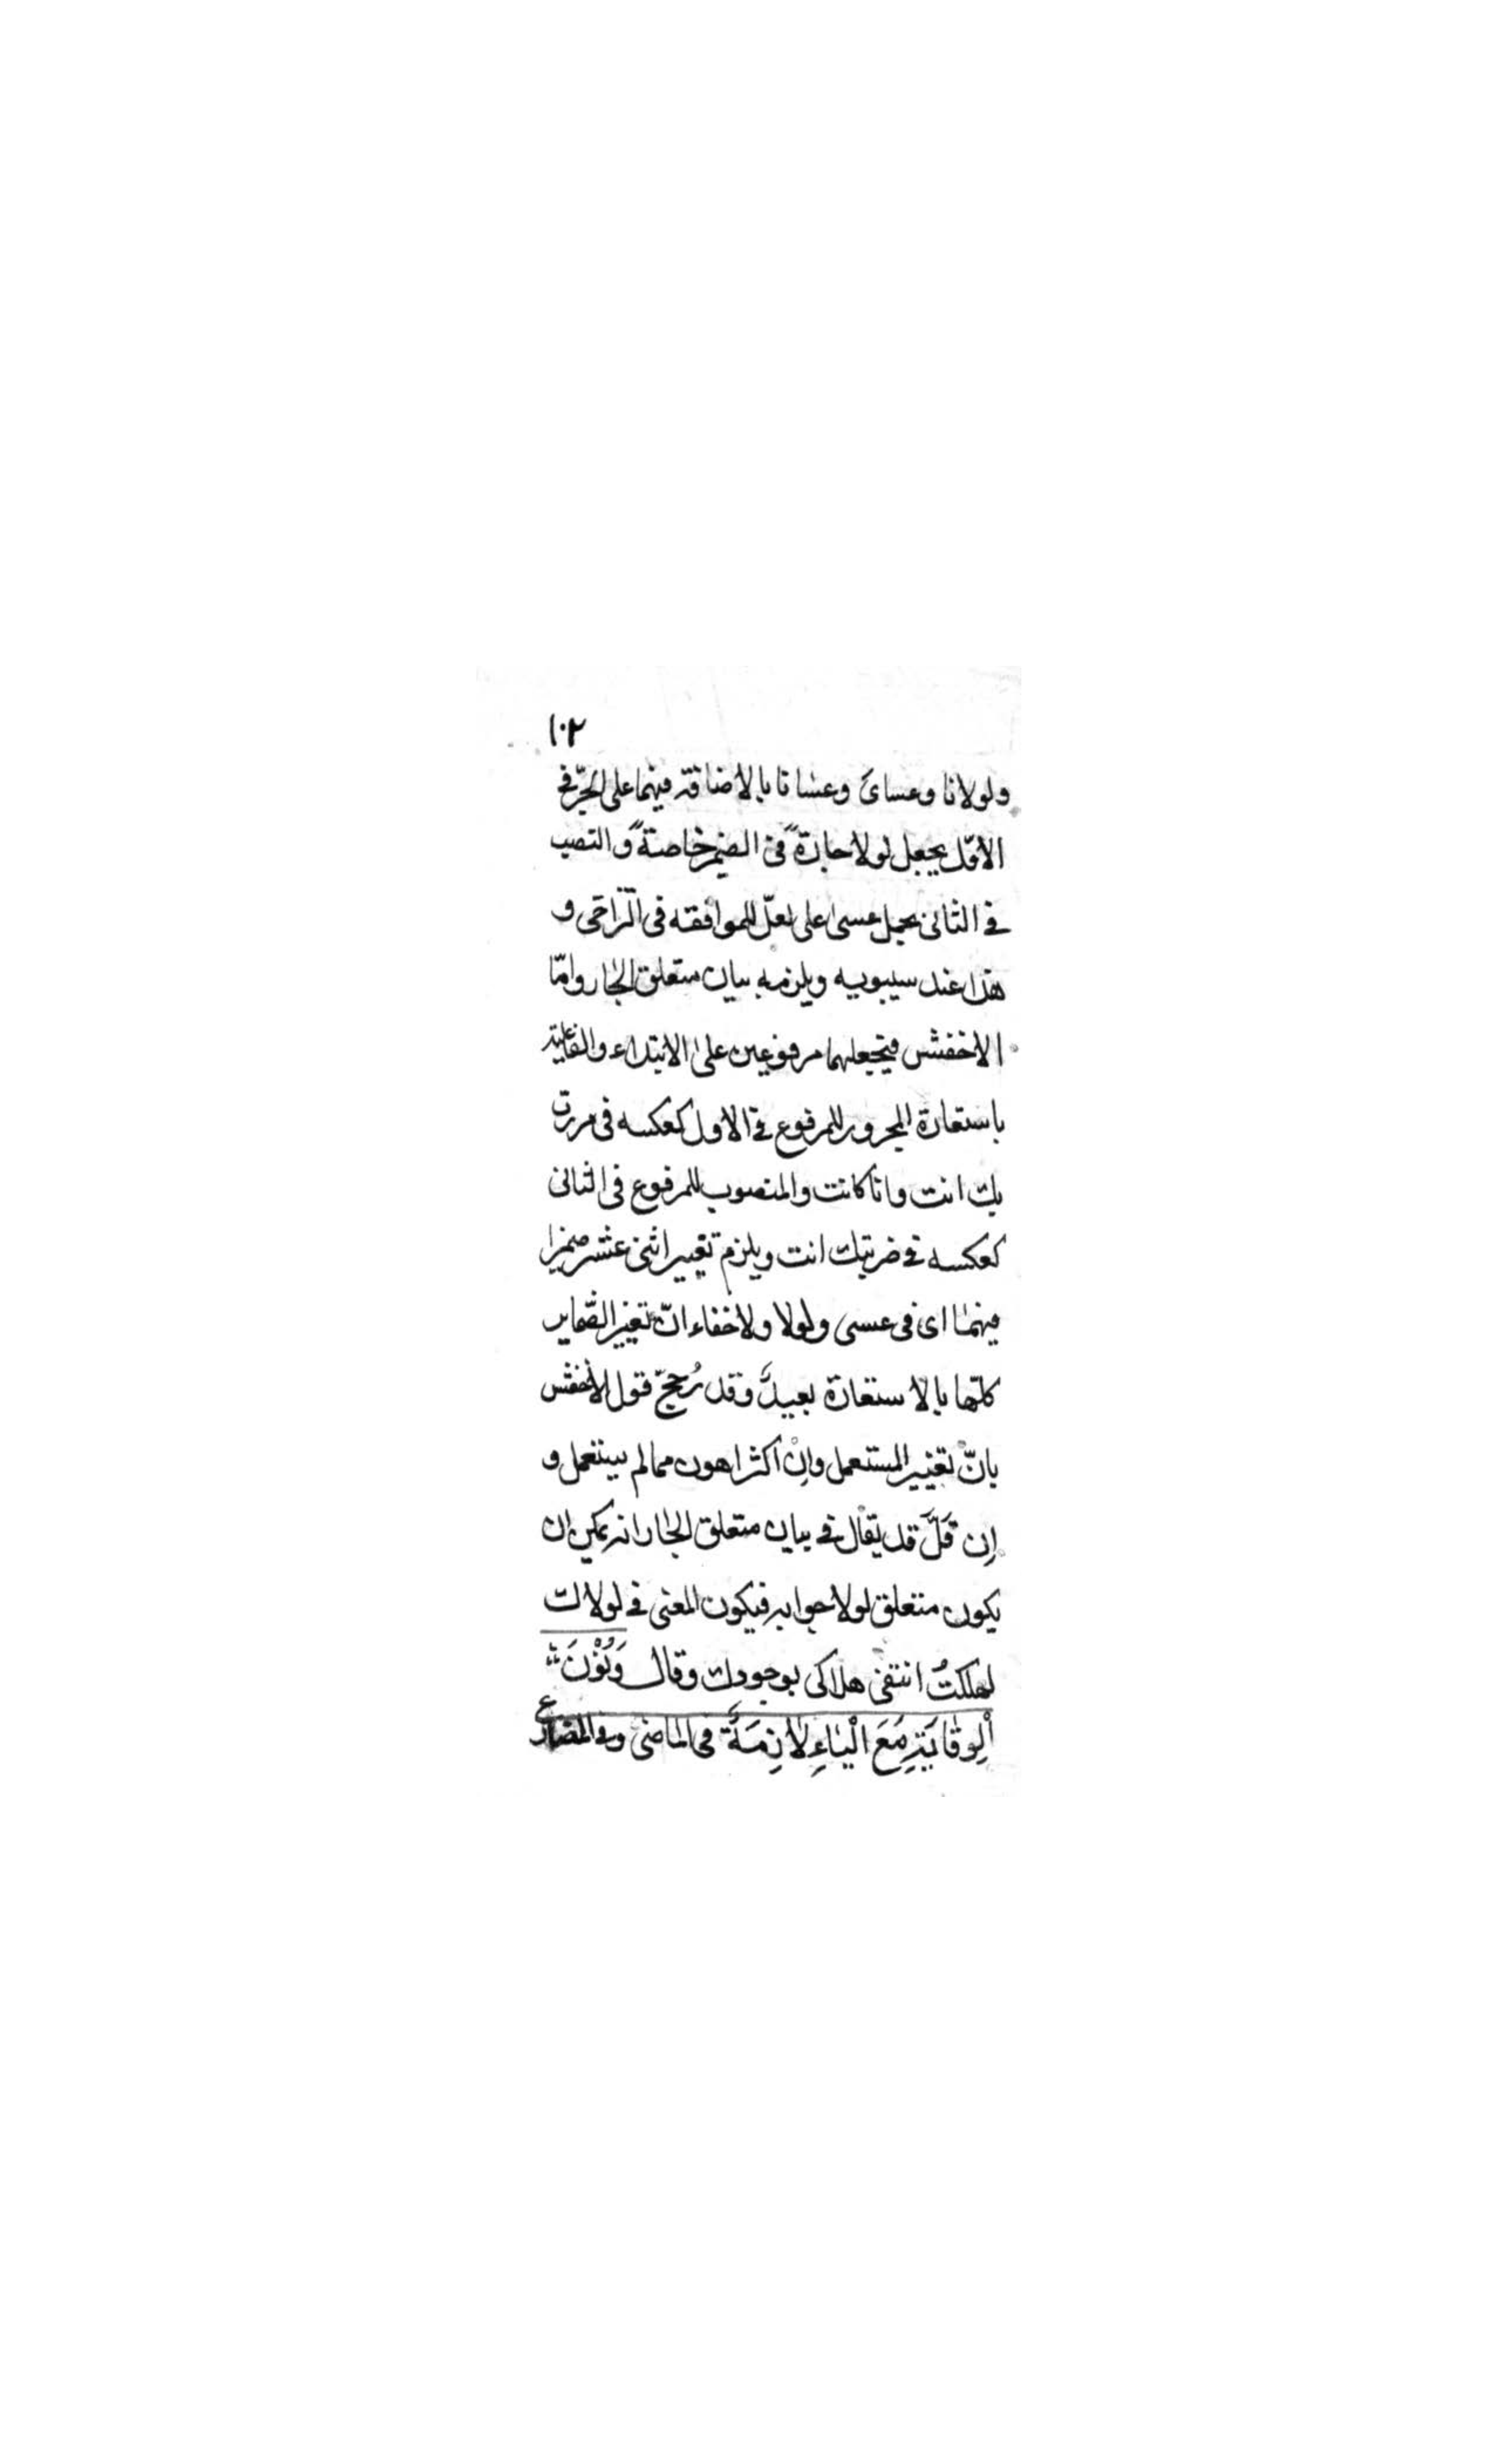 ١٠٢
ولولانا وعساىَ وعسانا بالاضافة فيهما على الجرّ فى
الاوّل بجعل لولا جارّةً فى الضمير خاصةً والنصب
فى الثانى بحمل عسى على لعلّ للموافقه فى الترّاجى و
هذا عند سيبويه ويلزمه بيان متعلق الجار وامّا
الاخفش فيجعلهما مرفوعين على الابتداء والفاعلية
باستعارة المجرور للمرفوع فى الاول كعكسه فى مررت
بك انت وانا كانت والمنصوب للمرفوع فى الثانى
كعكسه فى ضربتك انت ويلزم تغيير اثنى عشر ضميرا
فيهما اى فى عسى ولولا ولاخفاء انّ تغيير الضّماير
كلّها بالاستعارة بعيدٌ وقد رُجّح قول الاخفش
بانّ تغيير المستعمل وانْ اكثر اهون مما لم يستعمل و
اِن قَلَّ قد يقال فى بيان متعلق الجار انه يمكن ان
يكون متعلق لولا جوابه فيكون المعنى فى لولاك
لهلكتُ انتفى هلاكى بوجودك وقال وَنُوْنُ
اَلْوِقَايَةِ مَعَ الْيَاءِ لَازِمَةٌ فى الماضى وفى المضارع